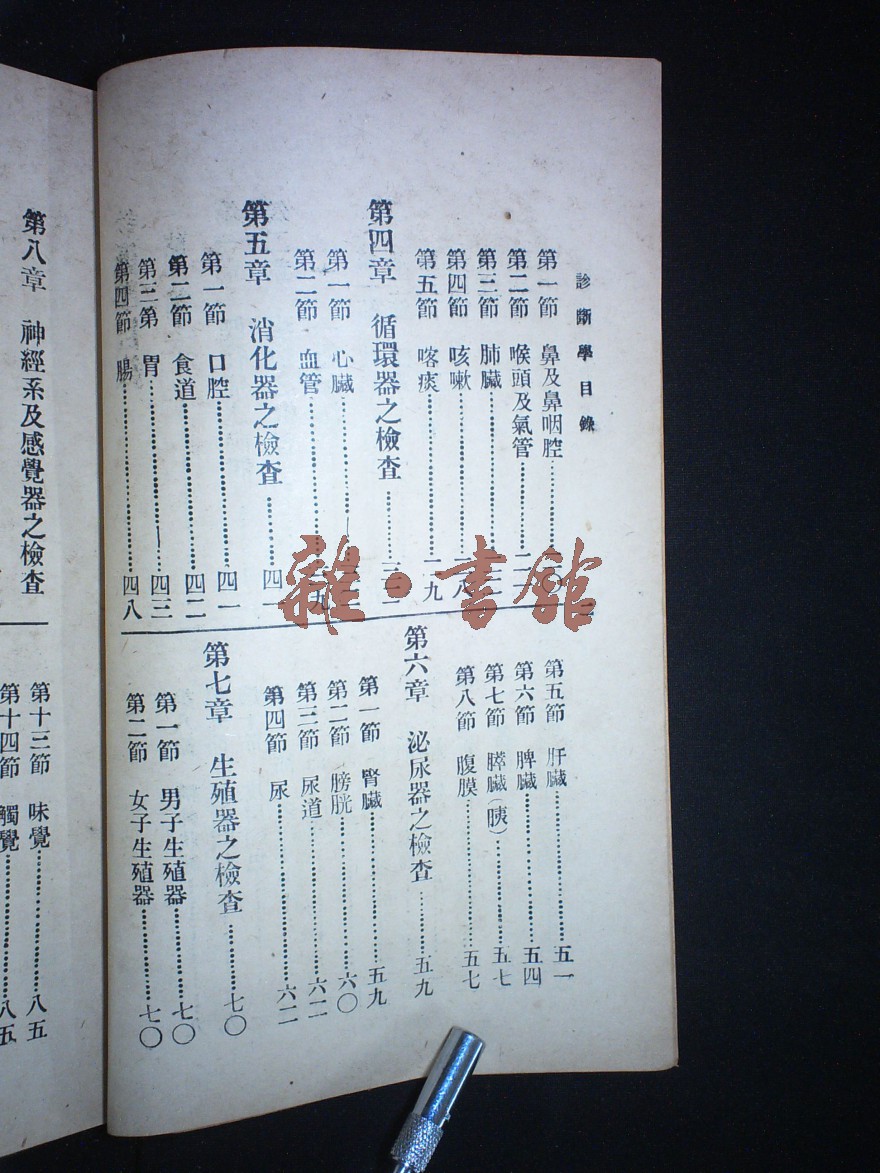 診斷學目錄
第一節 鼻及鼻咽腔
第二節 喉頭及氣管
第三節 肺臟
第四節 咳嗽
第五節 喀痰 二九
第四章 循環器之檢查
第一節 心臟
第二節 血管
第五章 消化器之檢查 四一
第一節 口腔 四一
第二節 食道 四二
第三第 胃 四三
第四節 腸 四八
第五節 肝臟 五一
第六節 脾臟 五四
第七節 膵臟(胰) 五七
第八節 腹膜 五七
第六章 泌尿器之檢查 五九
第一節 腎臟 五九
第二節 膀胱 六〇
第三節 尿道 六二
第四節 尿 六二
第七章 生殖器之檢查 七〇
第一節 男子生殖器 七〇
第二節 女子生殖器 七〇
第八章 神經系及感覺器之檢查
第十三節 味覺 八五
第十四節 觸覺 八五
雜·書館